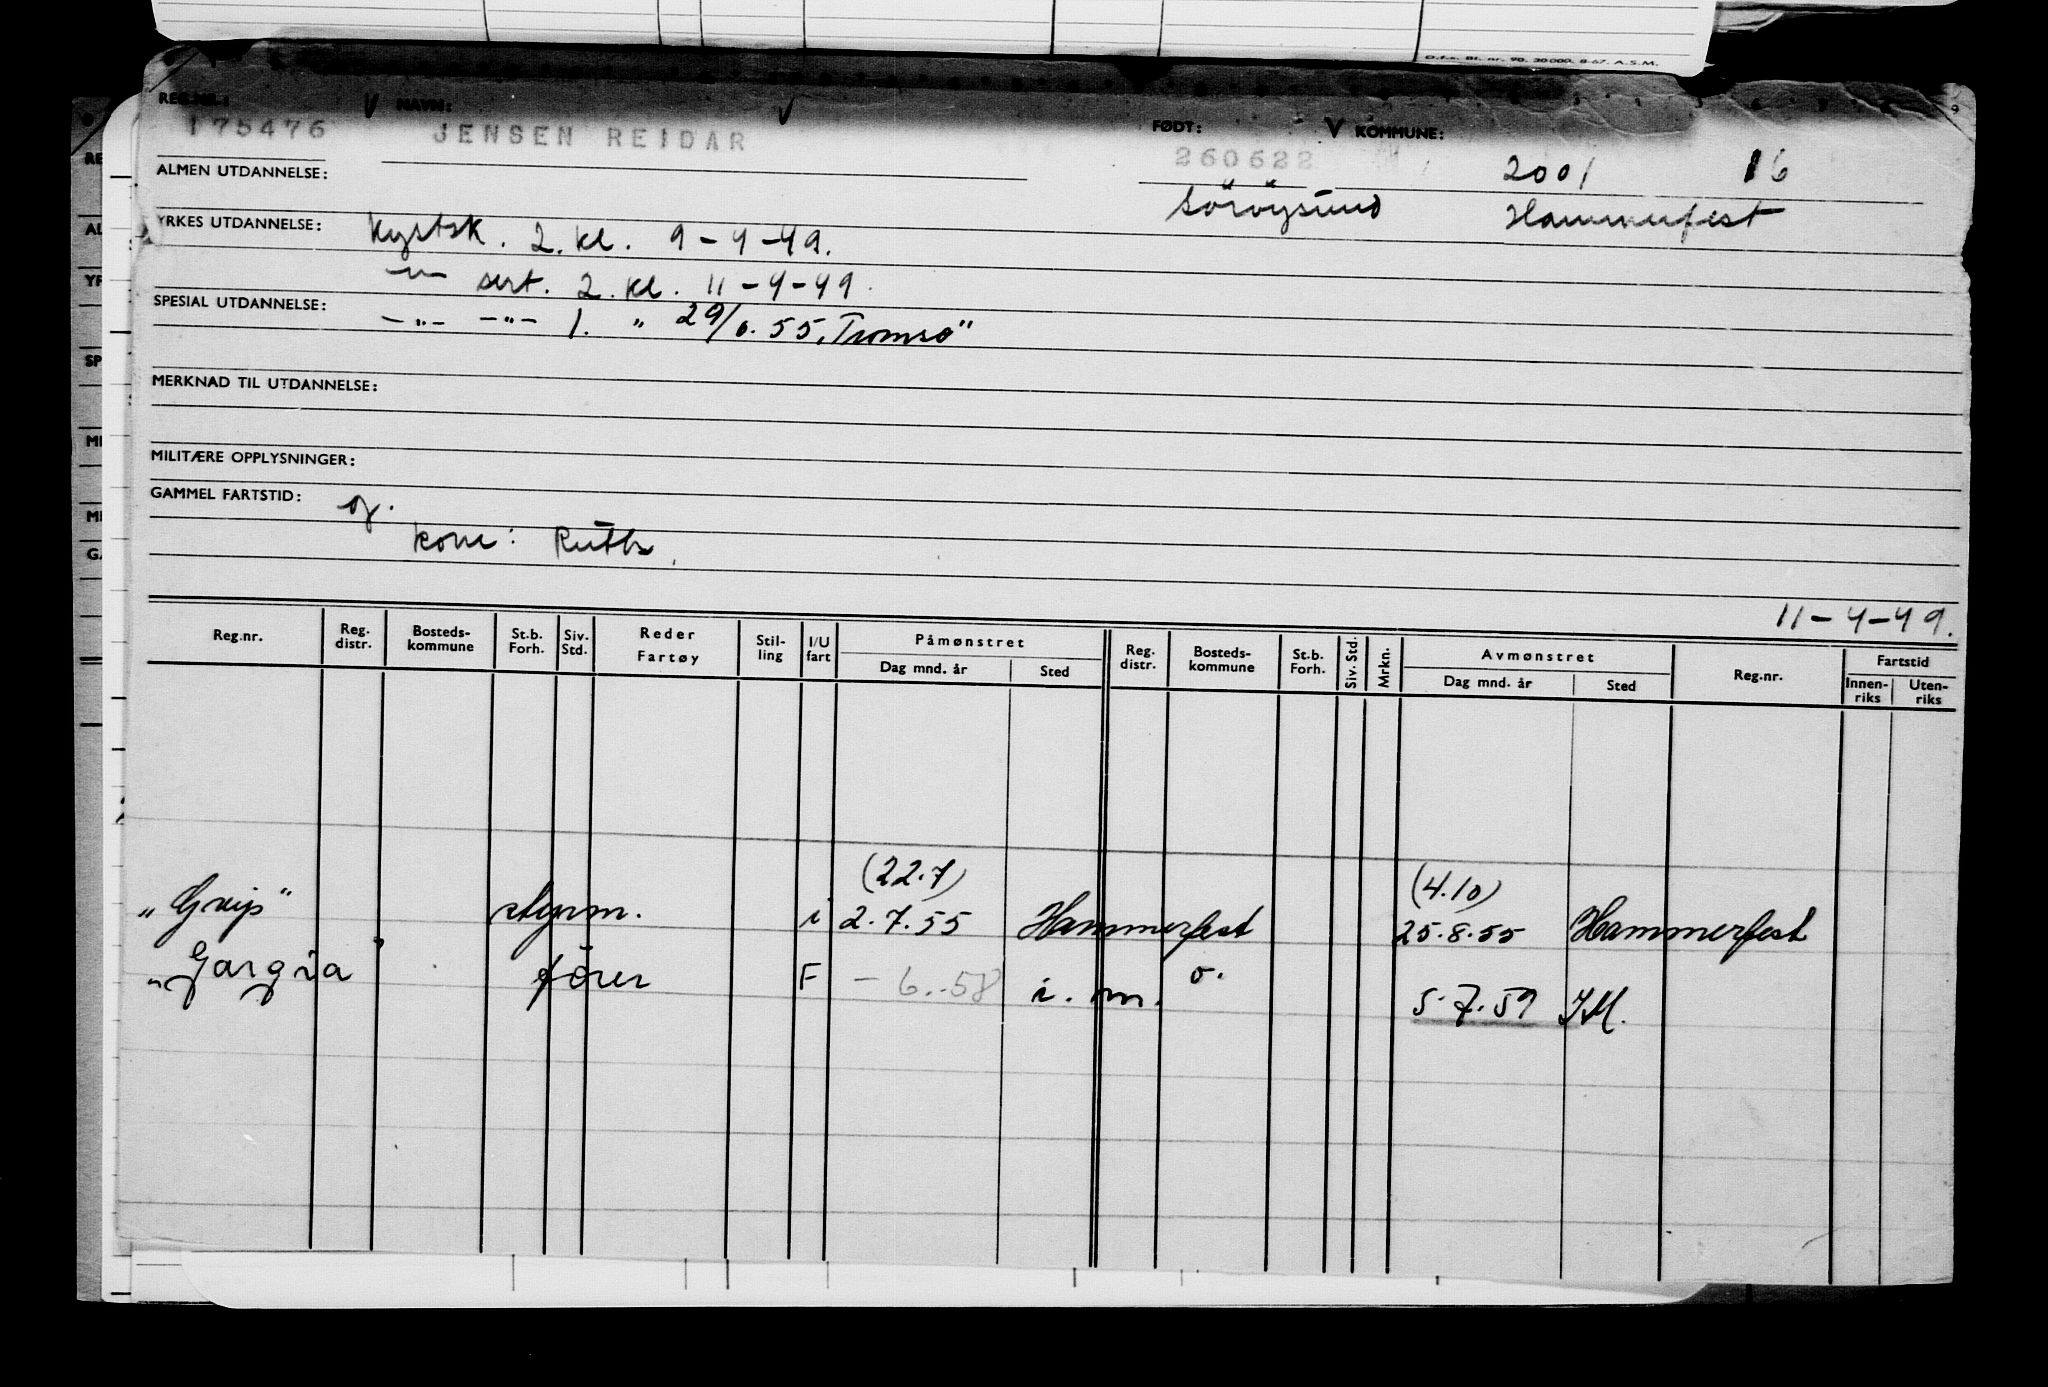 D.f.s. Bl. nr. 90. 30000. 8-67. A.S.M.
REG.NR.: V NAVN: V FØDT: V KOMMUNE:
175476 JENSEN REIDAR 260622 2001 16
ALMEN UTDANNELSE: Sörøysund Hammerfest
YRKES UTDANNELSE: Kystsk. 2. kl. 9-4-49.
-"- sert. 2. kl. 11-4-49.
SPESIAL UTDANNELSE: -"- -"- 1. " 29/6.55, Tromsø"
MERKNAD TIL UTDANNELSE:
MILITÆRE OPPLYSNINGER:
GAMMEL FARTSTID:
kone: Ruth
11-4-49.
Reg.nr. Reg. distr. Bosteds-kommune St.b. Forh. Siv. Std. Reder Fartøy Stil-ling I/U fart Påmønstret Dag mnd. år Sted Reg. distr. Bosteds-kommune St.b. Forh. Siv. Std. Mrkn. Avmønstret Dag mnd. år Sted Reg.nr. Fartstid Innen-riks Uten-riks
(22.7) (4.10)
"Grip" styrm. i 2.7.55 Hammerfest 25.8.55 Hammerfest
"Gargia" förer F - 6.-58 i. m. o. 5.7.59 I.M.